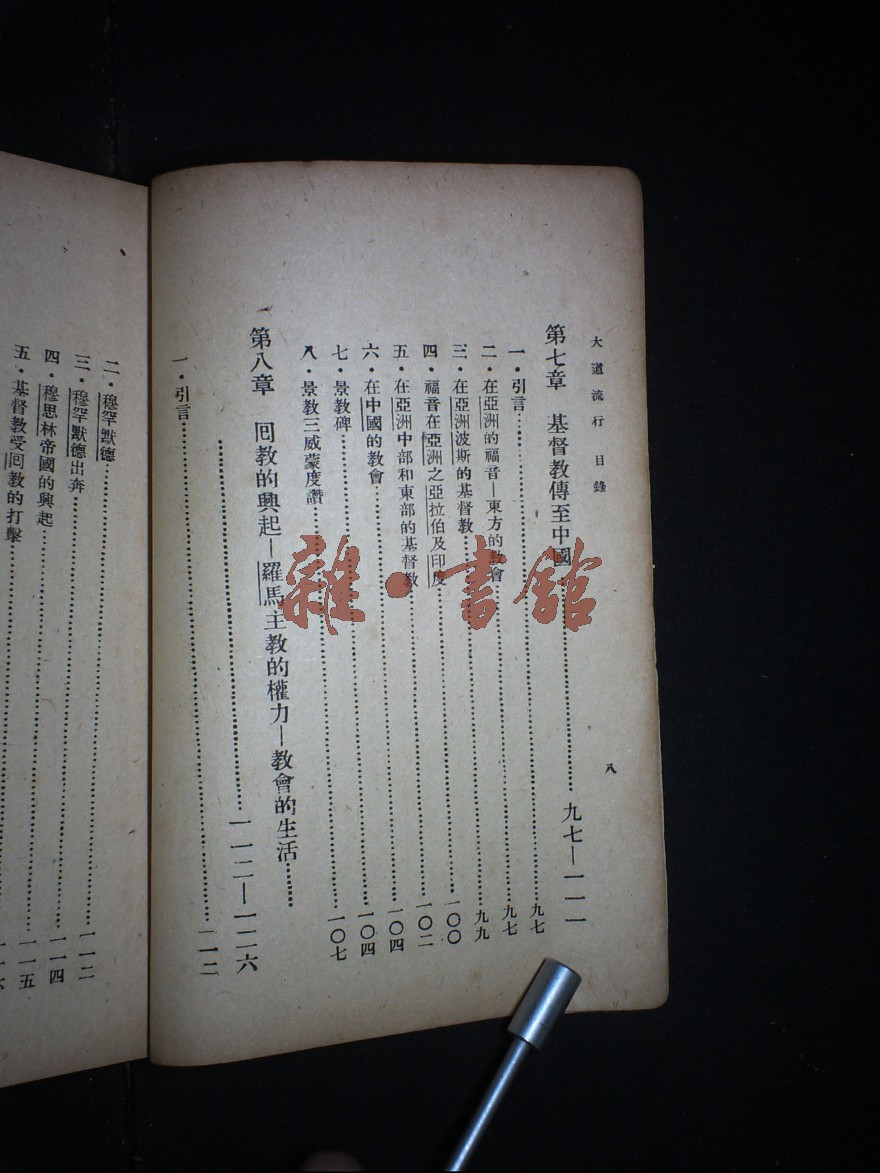 大道流行 目錄 八
第七章 基督教傳至中國……九七—一一一
一・引言……九七
二・在亞洲的福音—東方的教會……九七
三・在亞洲波斯的基督教……九九
四・福音在亞洲之亞拉伯及印度……一〇〇
五・在亞洲中部和東部的基督教……一〇二
六・在中國的教會……一〇四
七・景教碑……一〇四
八・景教三威蒙度讚……一〇七
第八章 回教的興起—羅馬主教的權力—教會的生活……
……一一二—一二六
一・引言……一一二
二・穆罕默德……一一二
三・穆罕默德出奔……一一四
四・穆思林帝國的興起……一一五
五・基督教受回教的打擊……
雜・書館